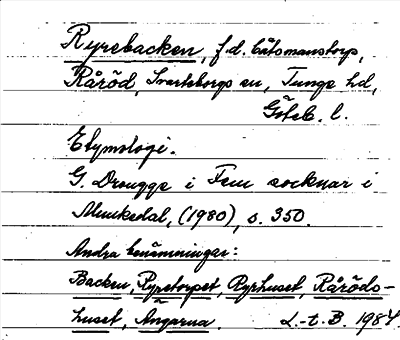 Ryrebacken, f.d. båtsmanstorp,
Råröd, Svarteborgs sn, Tunge hd,
Göteb. l.
Etymologi.
G. Drougge i Fem socknar i
Munkedal, (1980), s. 350.
Andra benämningar:
Backen, Ryretorpet, Ryrhuset, Råröds-
huset, Ängarna. L.-t. B. 1984